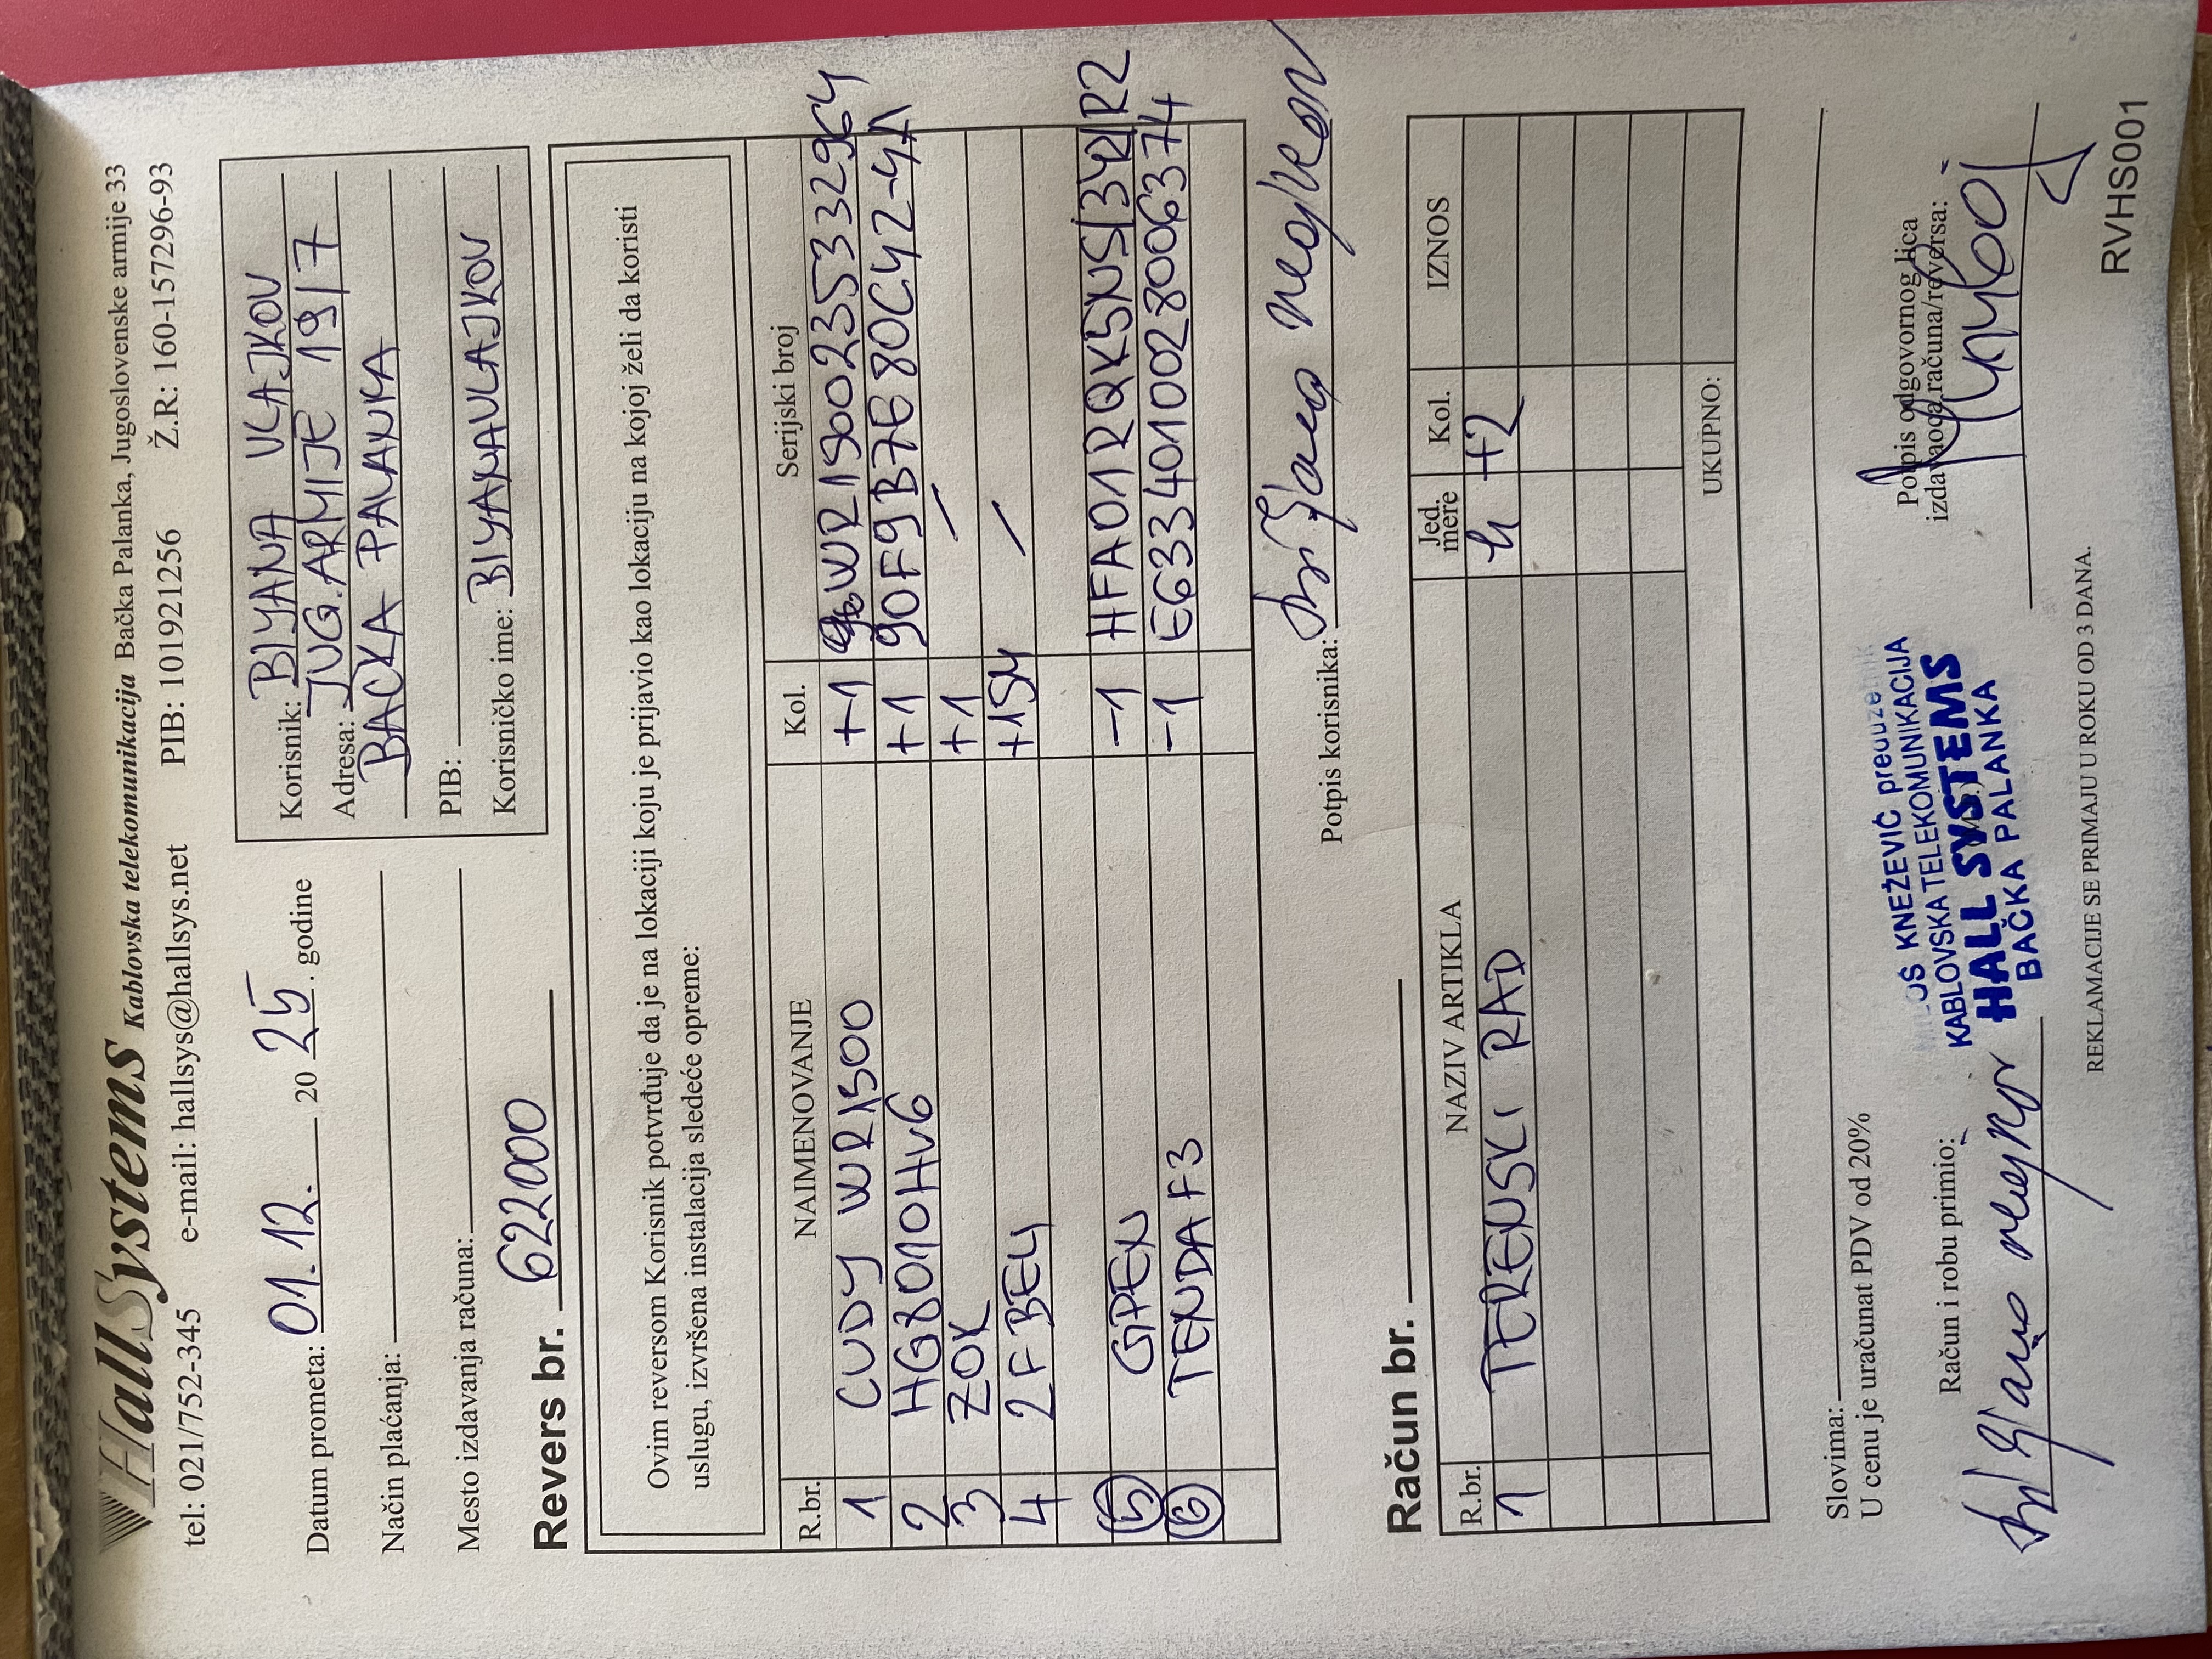 HallSystems Kablovska telekomunikacija Bačka Palanka, Jugoslovenske armije 33
tel: 021/752-345 e-mail: hallsys@hallsys.net PIB: 101921256 Ž.R: 160-157296-93
Datum prometa: 01.12. 20 25. godine
Način plaćanja:
Mesto izdavanja računa:
Korisnik: BIYANA VLAJKOV
Adresa: JUG. ARMIJE 19/7
BACKA PALANKA
PIB:
Korisničko ime: BIYANAVLAJKOV
Revers br. 622000
Ovim reversom Korisnik potvrđuje da je na lokaciji koju je prijavio kao lokaciju na kojoj želi da koristi
uslugu, izvršena instalacija sledeće opreme:
R.br. NAIMENOVANJE Kol. Serijski broj
1 CUDY WR1500 +1 WR1500235332964
2 HG8010Hv6 +1 90F9B7E80C42-4A
3 ZOK +1 /
4 2FBEY +154 /
5 GPEN -1 HFA01RQK5NS/342/R2
6 TENDA F3 -1 E6334010028006374
Potpis korisnika:
Račun br.
R.br. NAZIV ARTIKLA Jed. mere Kol. IZNOS
1 TERENSKI RAD h +2
UKUPNO:
Slovima:
U cenu je uračunat PDV od 20%
Račun i robu primio:
Potpis odgovornog lica
izdavaoca računa/reversa:
KNEŽEVIĆ preduzetnik
KABLOVSKA TELEKOMUNIKACIJA
HALL SYSTEMS
BAČKA PALANKA
REKLAMACIJE SE PRIMAJU U ROKU OD 3 DANA.
RVHS001